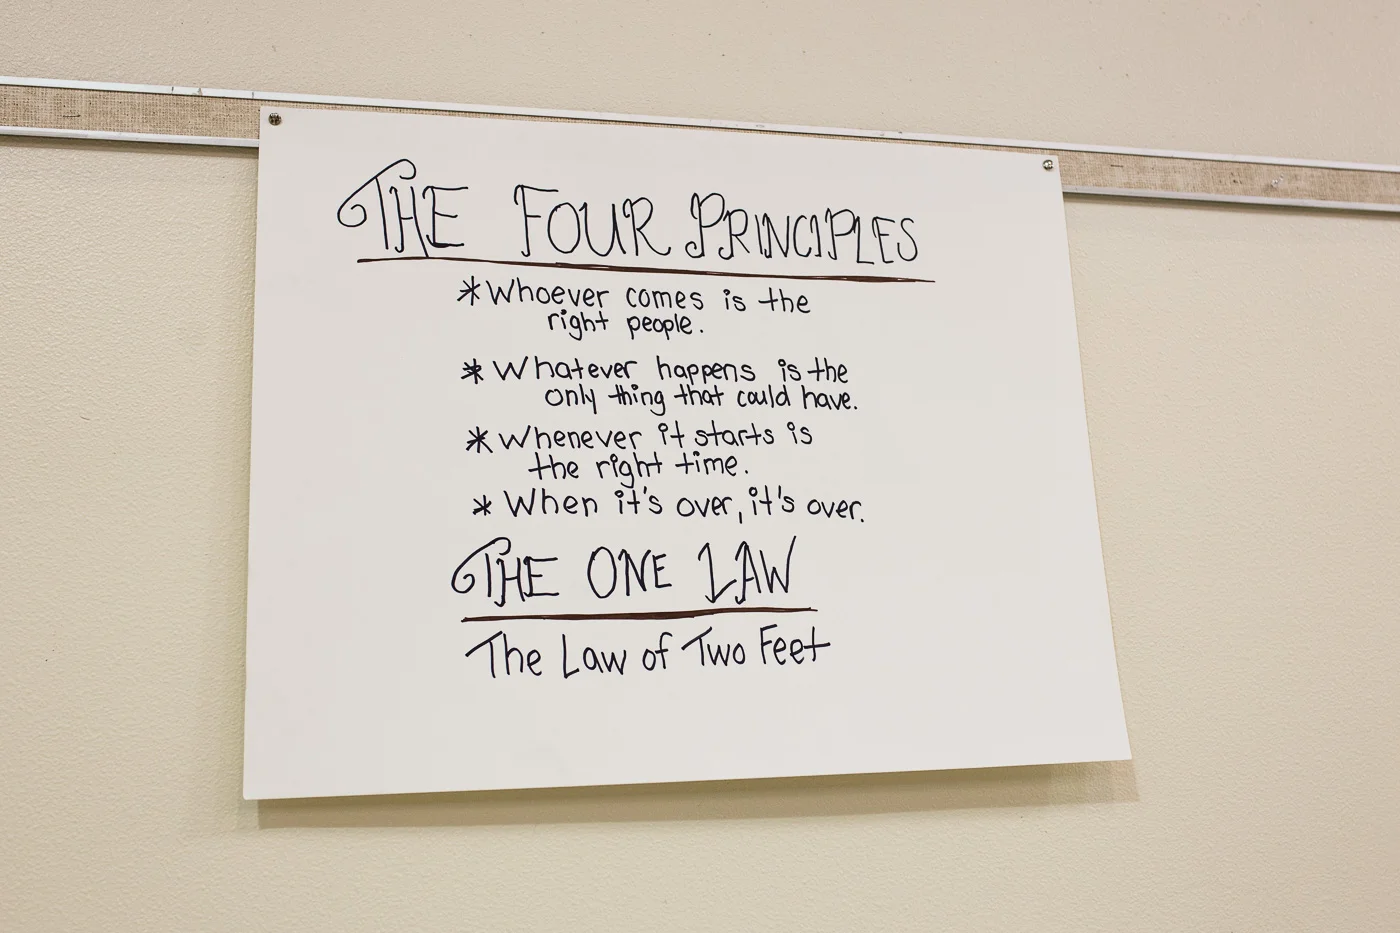 THE FOUR PRINCIPLES
* Whoever comes is the
right people.
* Whatever happens is the
only thing that could have.
* Whenever it starts is
the right time.
* When it's over, it's over.
THE ONE LAW
The Law of Two Feet